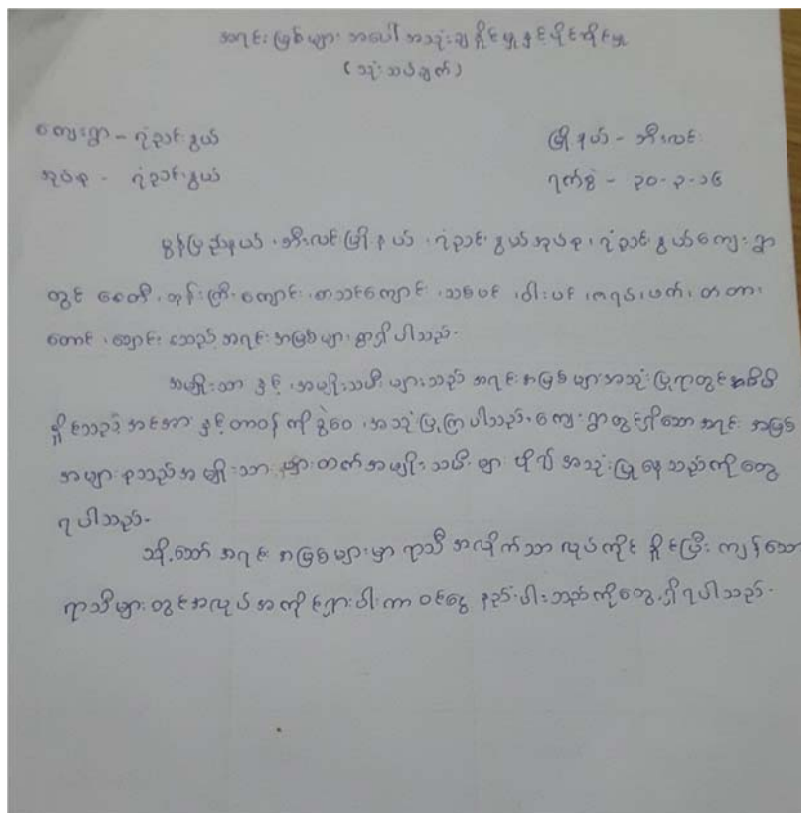 အရင်းမြစ်များ အပေါ် အသုံးချနိုင်မှုနှင့်ပိုင်ဆိုင်မှု
(သုံးသပ်ချက်)
ကျေးရွာ - ဂံညင်းနွယ် မြို့နယ် - ဘီးလင်း
အုပ်စု - ဂံညင်းနွယ် ရက်စွဲ - ၃၀-၃-၁၆
မွန်ပြည်နယ်၊ ဘီးလင်းမြို့နယ်၊ ဂံညင်းနွယ်အုပ်စု၊ ဂံညင်းနွယ်ကျေးရွာ
တွင် စေတီ၊ ဘုန်းကြီးကျောင်း၊ စာသင်ကျောင်း၊ သစ်ပင်၊ ဝါးပင်၊ ဖက်၊ တံတား
တောင်၊ ချောင်း စသည့် အရင်းအမြစ်များ စွာရှိပါသည်။
အမျိုးသား နှင့် အမျိုးသမီး များသည် အရင်းအမြစ်များအသုံးပြုရာတွင် မိမိ
နိုင်သည့် အင်အား နှင့်တာဝန်ကိုခွဲဝေ အသုံးပြုကြပါသည်။ ကျေးရွာတွင်ရှိသော အရင်းအမြစ်
အများစုသည်အမျိုးသားများထက်အမျိုးသမီးများ ပိုမို အသုံးပြုနေသည်ကိုတွေ့
ရပါသည်။
သို့သော် အရင်းအမြစ်များမှာ ရာသီအလိုက်သာ လုပ်ကိုင်နိုင်ပြီး ကျန်သော
ရာသီများတွင်အလုပ်အကိုင်ရှားပါးကာ ဝင်ငွေ နည်းပါးသည်ကိုတွေ့ရှိရပါသည်။